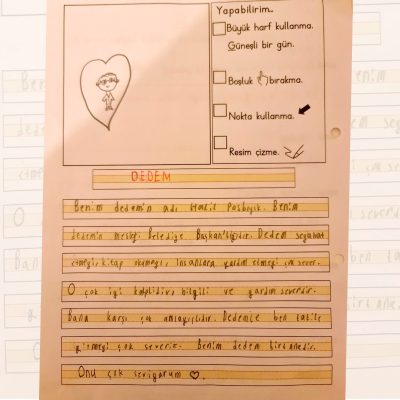 Yapabilirim..
Büyük harf kullanma.
Güneşli bir gün.
Boşluk bırakma.
Nokta kullanma.
Resim çizme.
DEDEM
Benim dedemin adı Halil Posbıyık. Benim
dedemin mesleği Belediye Başkan'lığıdır. Dedem seyahat
etmeyi, kitap okumayı, insanlara yardım etmeyi çok sever.
O çok iyi kalplidir, bilgili ve yardım severdir.
Bana karşı çok anlayışlıdır. Dedemle ben tatile
gitmeyi çok severiz. Benim dedem bir tanedir.
Onu çok seviyorum